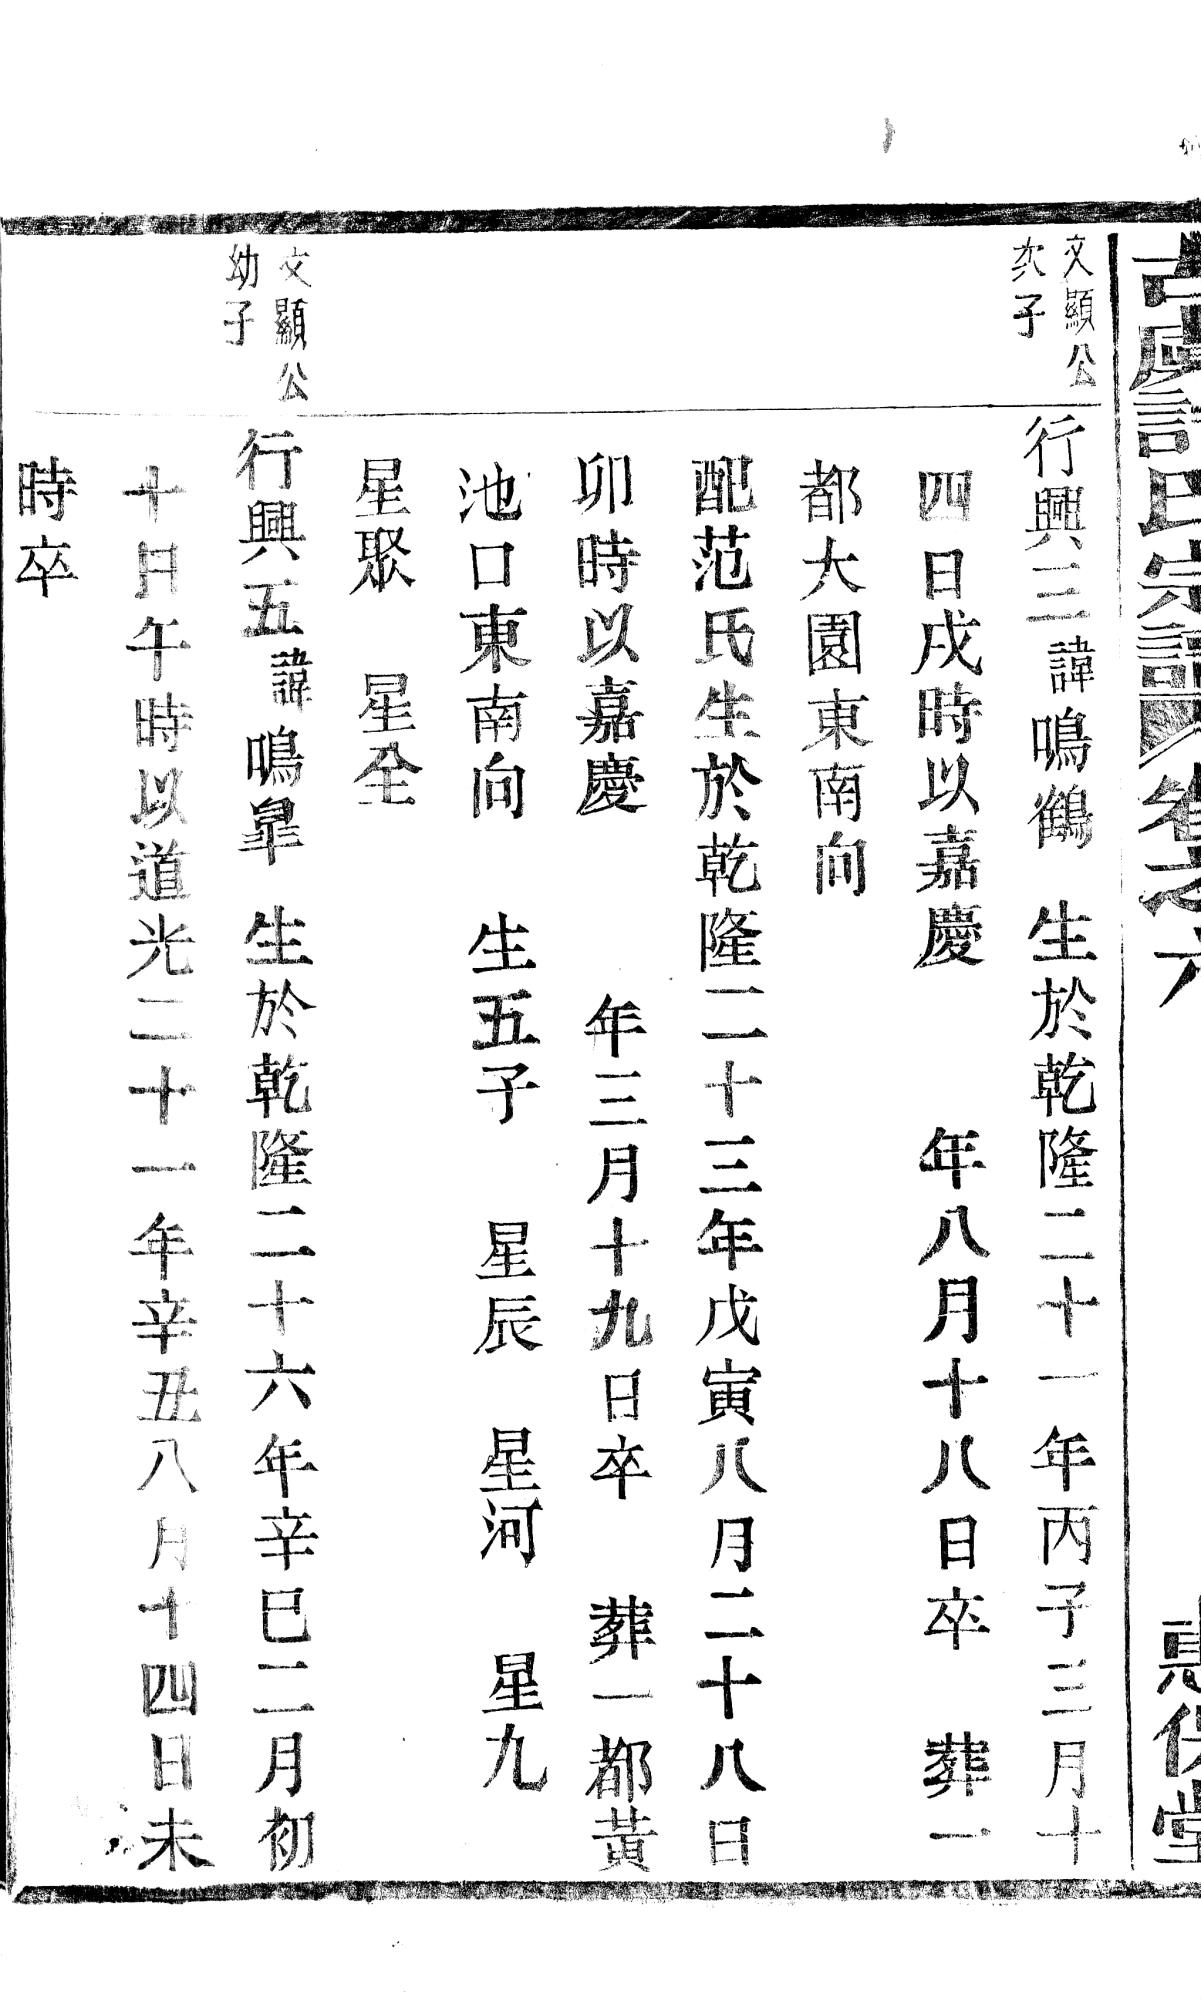 古虞許氏宗譜 卷之六 惠保堂
文顯公
次子
行興三諱鳴鶴 生於乾隆二十一年丙子三月十
四日戌時以嘉慶 年八月十八日卒 葬一
都大園東南向
配范氏生於乾隆二十三年戊寅八月二十八日
卯時以嘉慶 年三月十九日卒 葬一都黃
池口東南向 生五子 星辰 星河 星九
星聚 星全
文顯公
幼子
行興五諱鳴皐 生於乾隆二十六年辛巳二月初
十日午時以道光二十一年辛丑八月十四日未
時卒